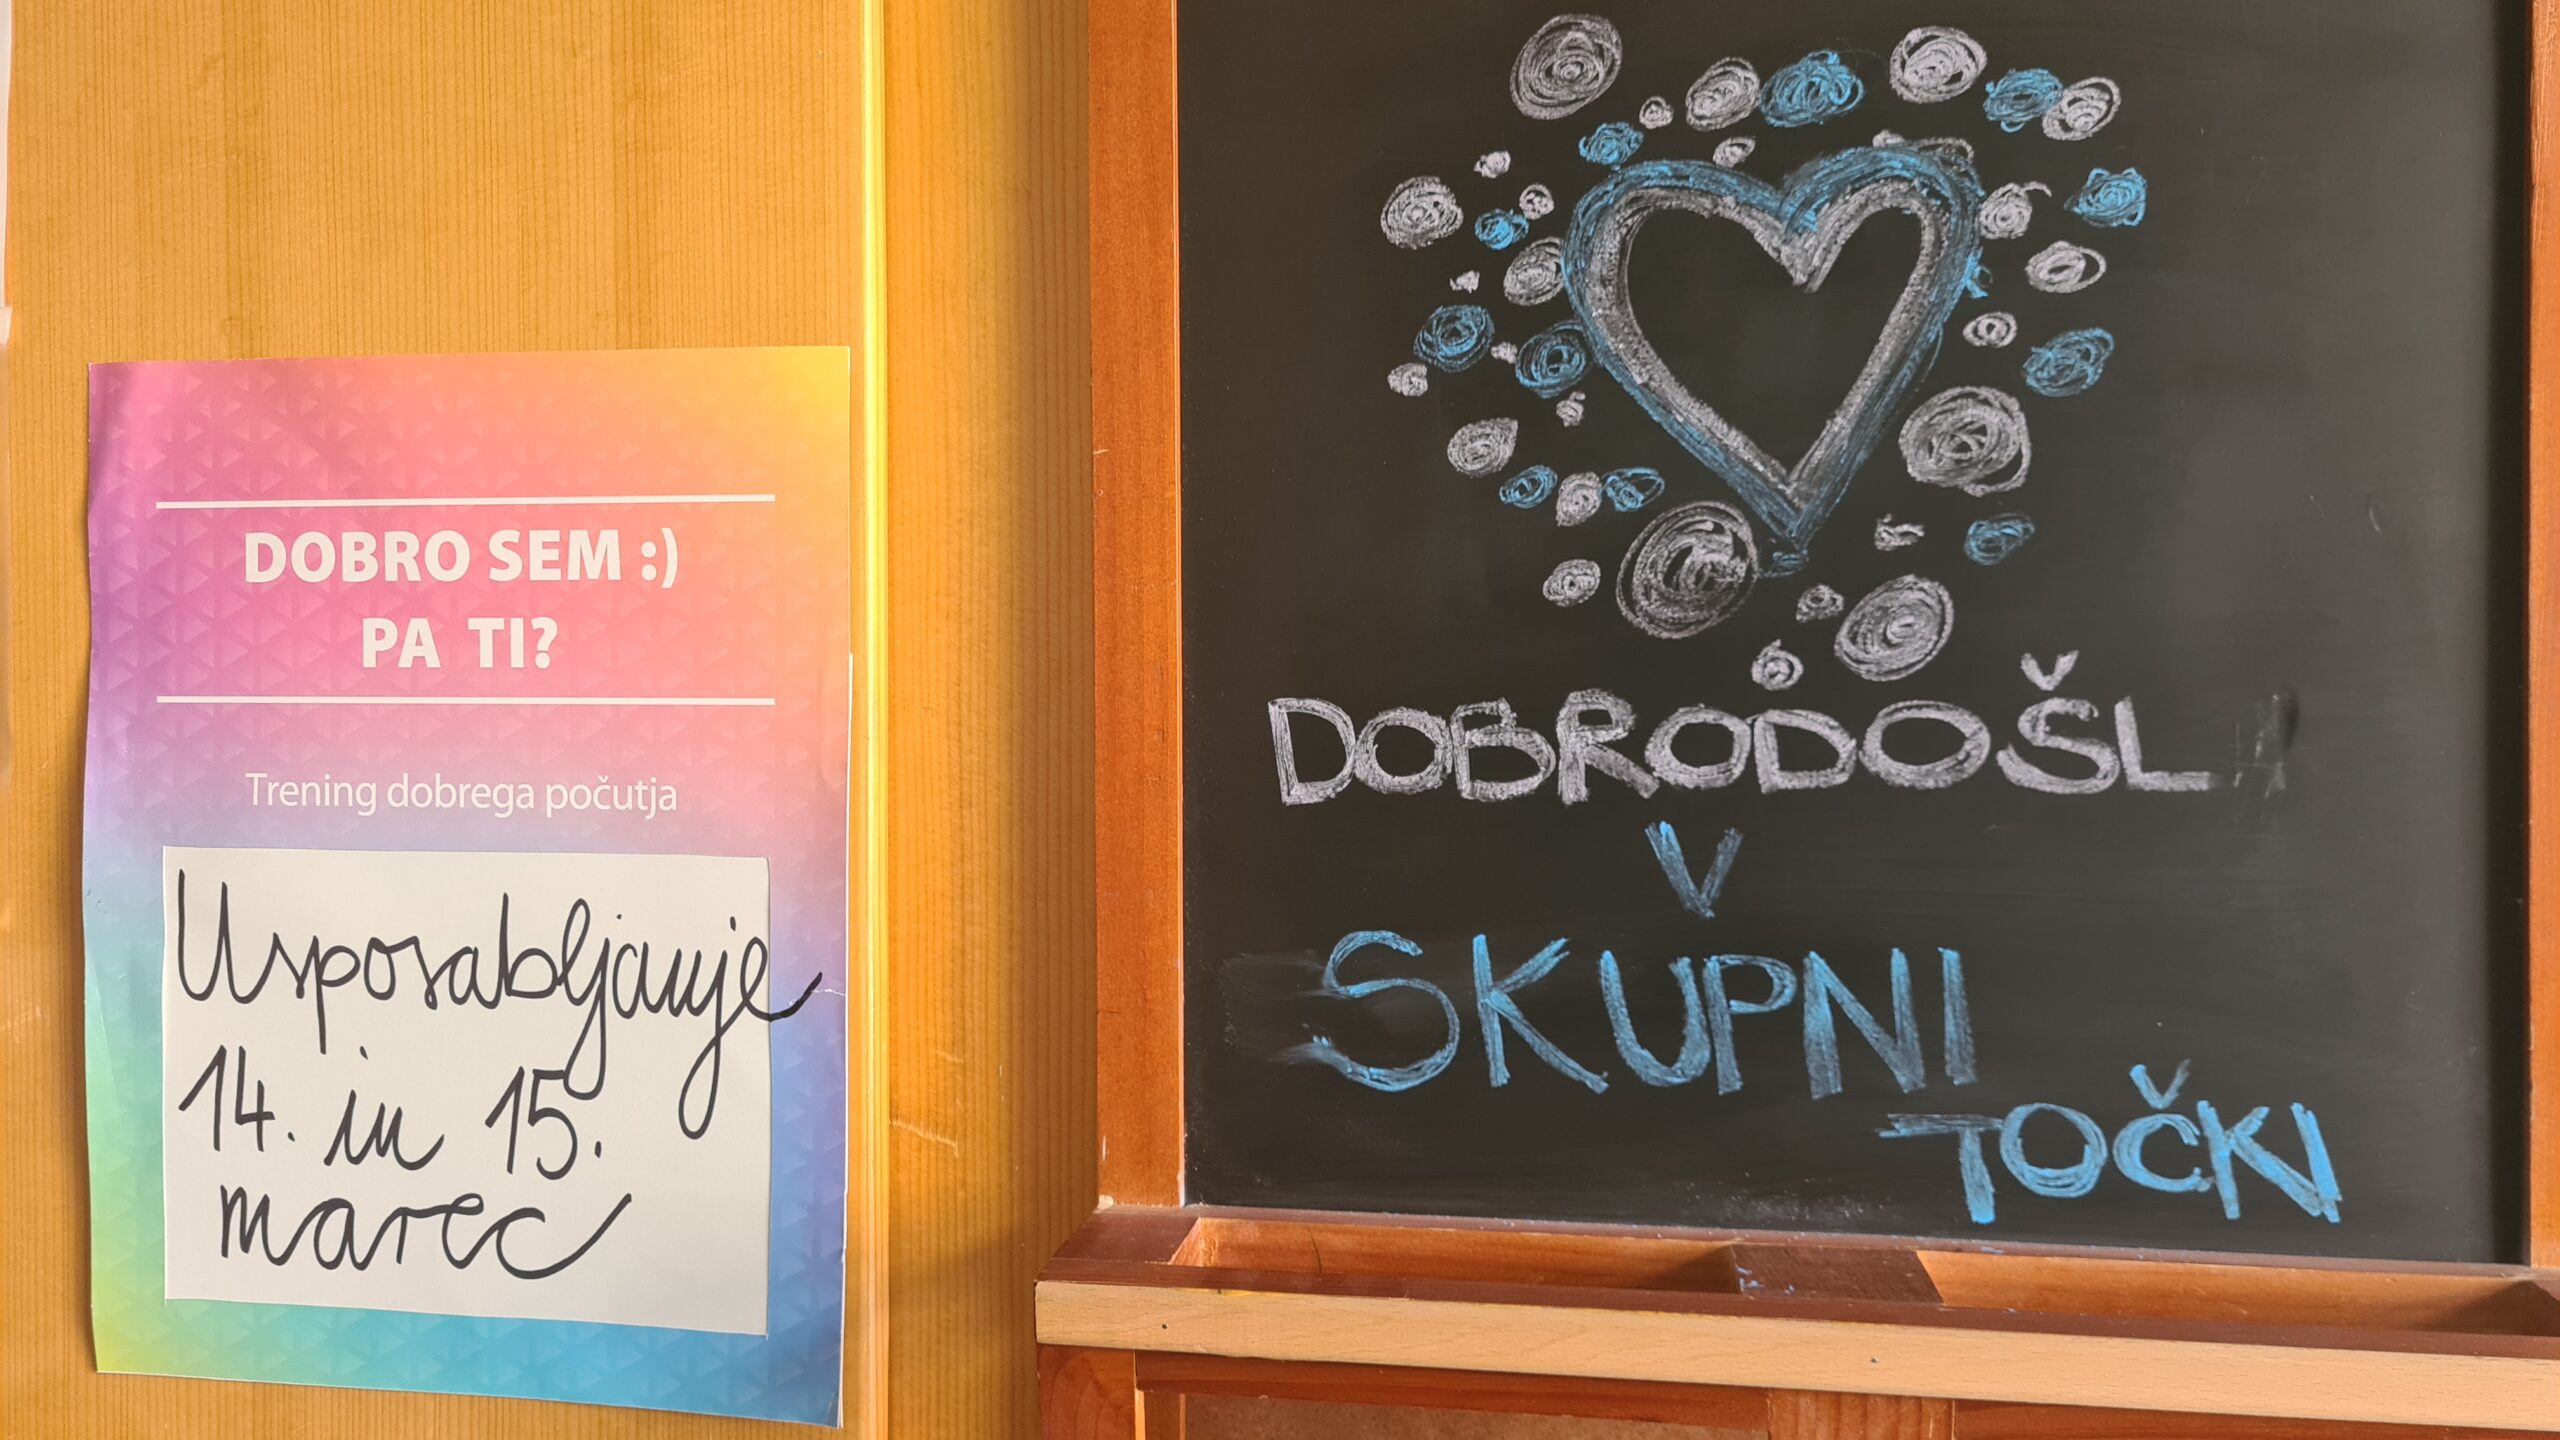 DOBRO SEM :)
PA TI?
Trening dobrega počutja
Usposabljanje
14. in 15.
marec
DOBRODOŠLI
V
SKUPNI
TOČKI